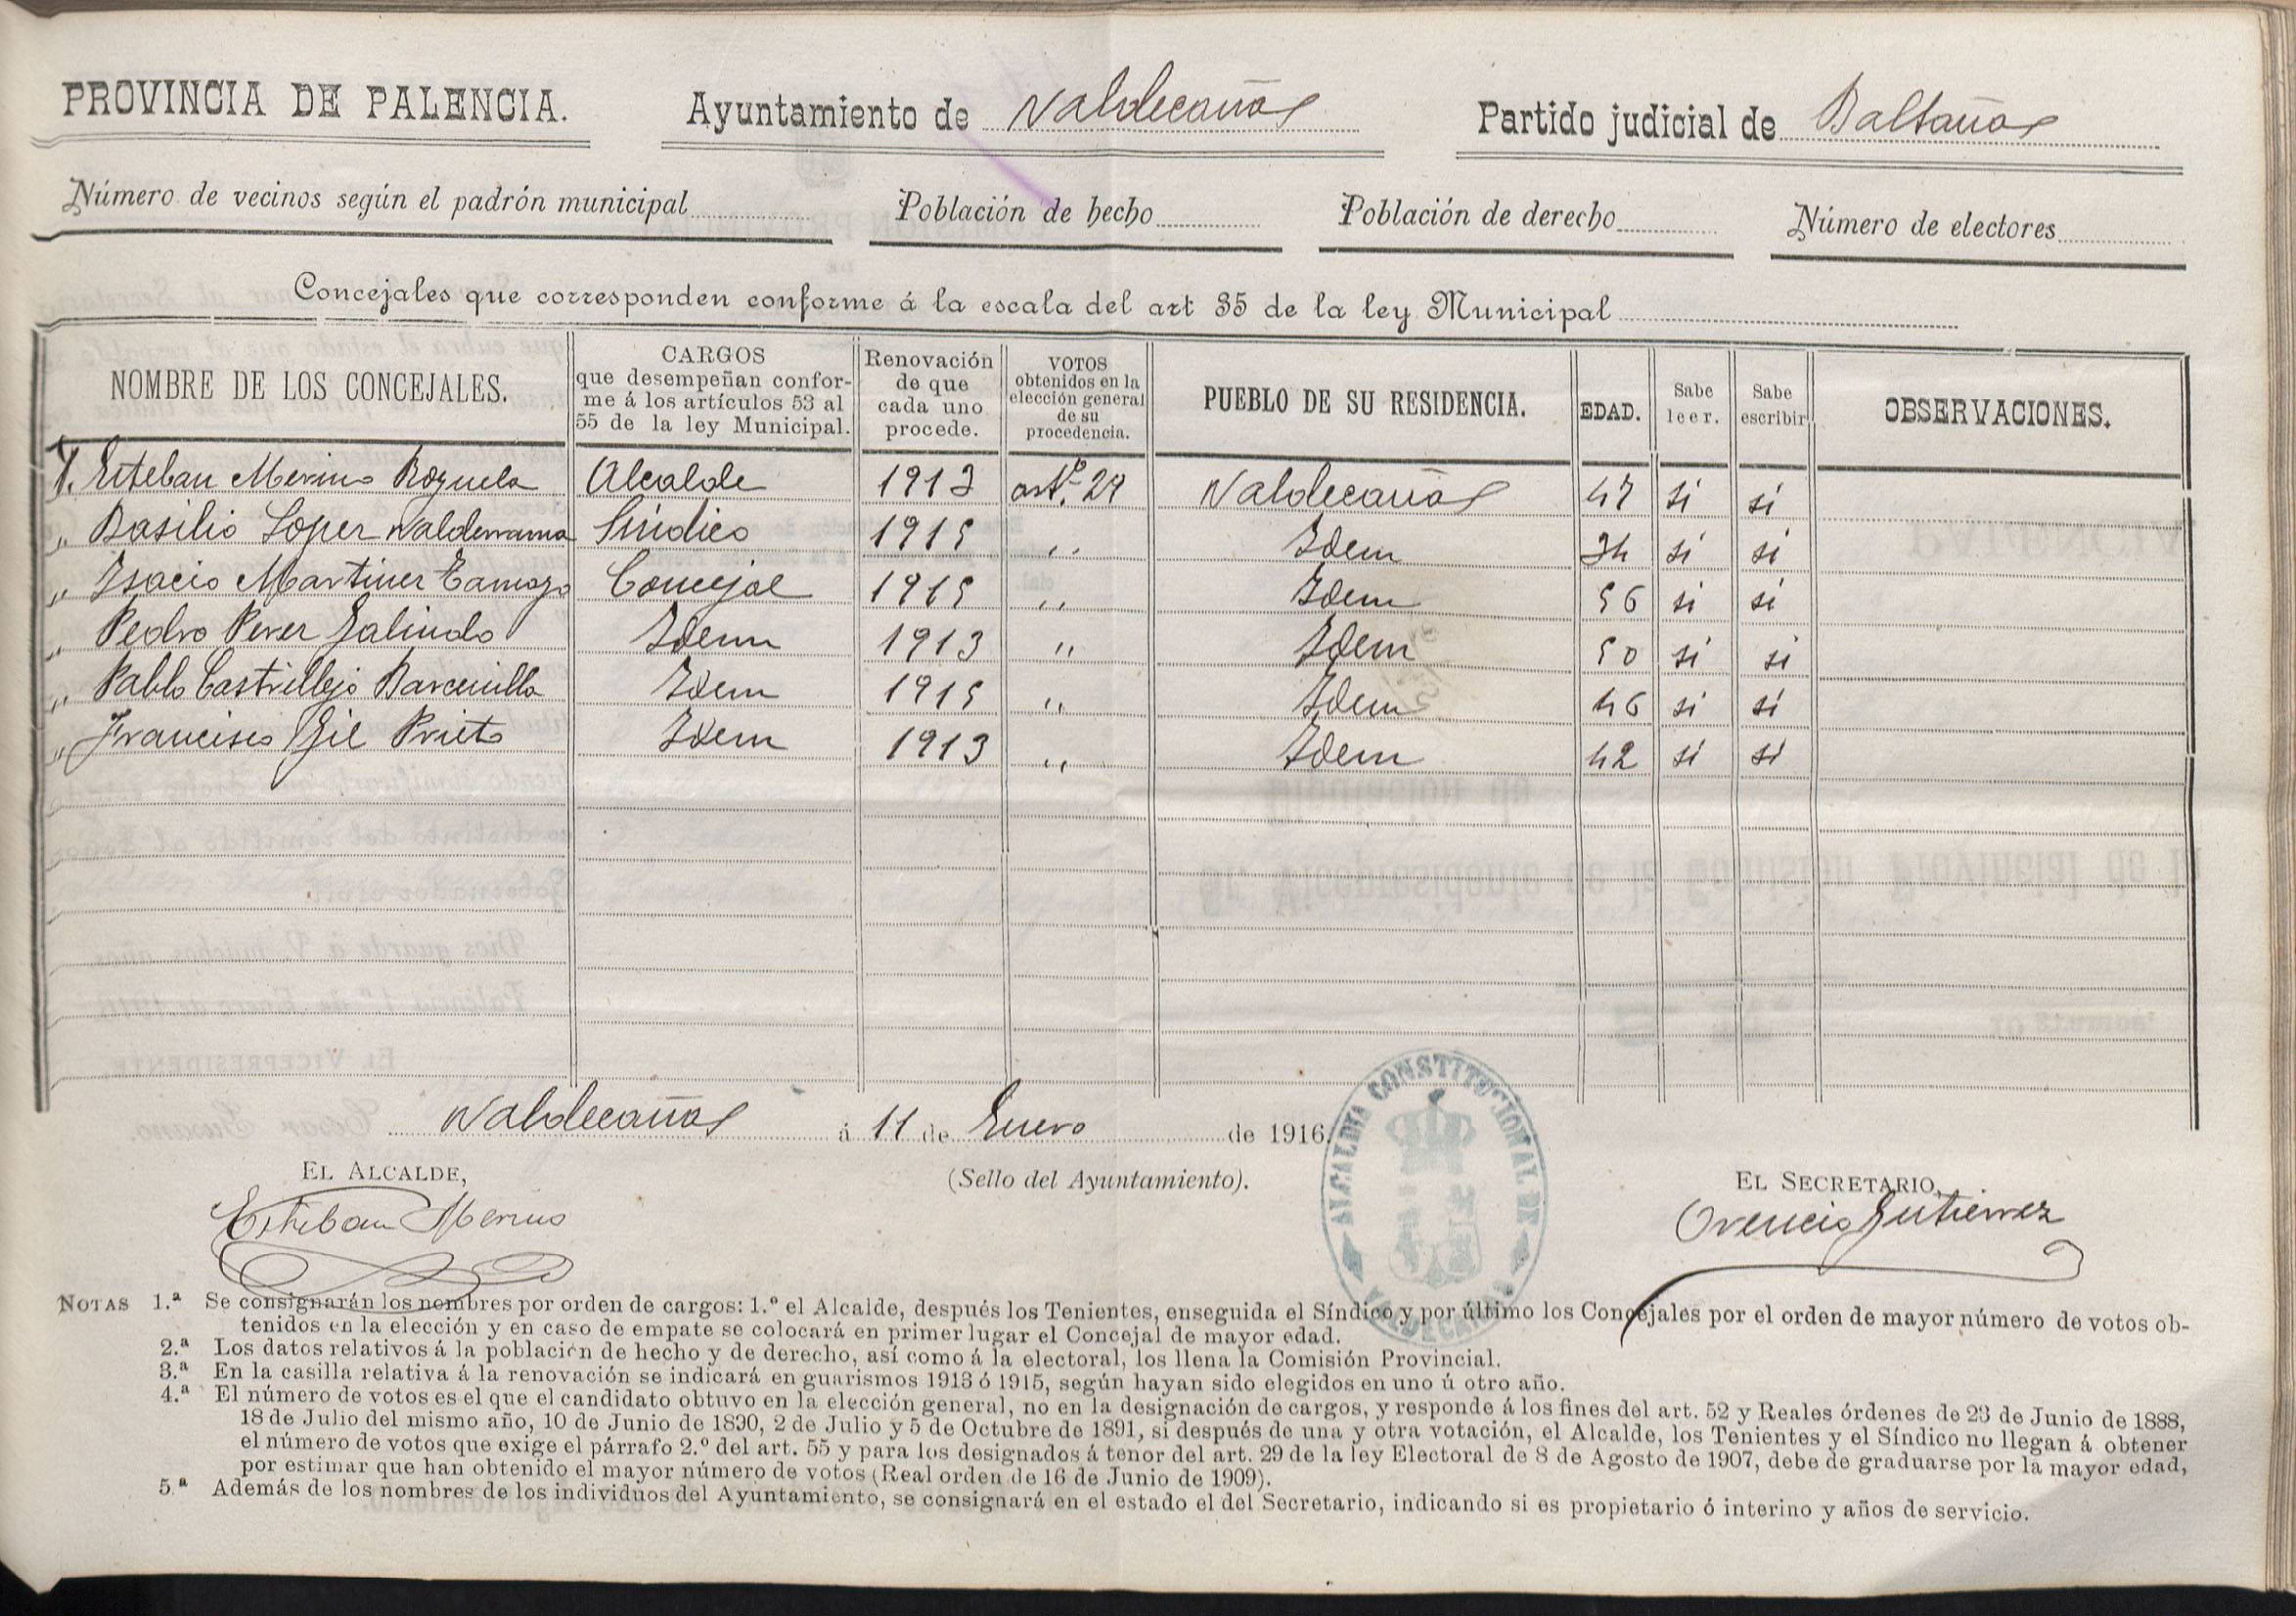 PROVINCIA DE PALENCIA. Ayuntamiento de Valdecañas Partido judicial de Baltañas
Número de vecinos según el padrón municipal Población de hecho Población de derecho Número de electores
Concejales que corresponden conforme á la escala del art 35 de la ley Municipal
NOMBRE DE LOS CONCEJALES. CARGOS que desempeñan conforme á los artículos 53 al 55 de la ley Municipal. Renovación de que cada uno procede. VOTOS obtenidos en la elección general de su procedencia. PUEBLO DE SU RESIDENCIA. EDAD. Sabe leer. Sabe escribir OBSERVACIONES.
Esteban Merino Alcalde 1913 artº. 29 Valdecañas 47 si si
„ Basilio Lopez Valderrama Sindico 1915 „ Idem 34 si si
„ Isacio Martinez Concejal 1915 „ Idem 56 si si
„ Pedro Perez Galindo Idem 1913 „ Idem 50 si si
„ Pablo Castrillejo Barcenilla Idem 1915 „ Idem 46 si si
„ Francisco Gil Prieto Idem 1913 „ Idem 42 si si
Valdecañas á 11 de Enero de 1916.
EL ALCALDE, (Sello del Ayuntamiento). EL SECRETARIO,
Esteban Merino Orencio Gutierrez
ALCALDIA CONSTITUCIONAL DE VALDECAÑAS
NOTAS 1.ª Se consignarán los nombres por orden de cargos: 1.º el Alcalde, después los Tenientes, enseguida el Síndico y por último los Concejales por el orden de mayor número de votos ob-
tenidos en la elección y en caso de empate se colocará en primer lugar el Concejal de mayor edad.
2.ª Los datos relativos á la población de hecho y de derecho, así como á la electoral, los llena la Comisión Provincial.
3.ª En la casilla relativa á la renovación se indicará en guarismos 1913 ó 1915, según hayan sido elegidos en uno ú otro año.
4.ª El número de votos es el que el candidato obtuvo en la elección general, no en la designación de cargos, y responde á los fines del art. 52 y Reales órdenes de 23 de Junio de 1888,
18 de Julio del mismo año, 10 de Junio de 1890, 2 de Julio y 5 de Octubre de 1891, si después de una y otra votación, el Alcalde, los Tenientes y el Síndico no llegan á obtener
el número de votos que exige el párrafo 2.º del art. 55 y para los designados á tenor del art. 29 de la ley Electoral de 8 de Agosto de 1907, debe de graduarse por la mayor edad,
por estimar que han obtenido el mayor número de votos (Real orden de 16 de Junio de 1909).
5.ª Además de los nombres de los individuos del Ayuntamiento, se consignará en el estado el del Secretario, indicando si es propietario ó interino y años de servicio.